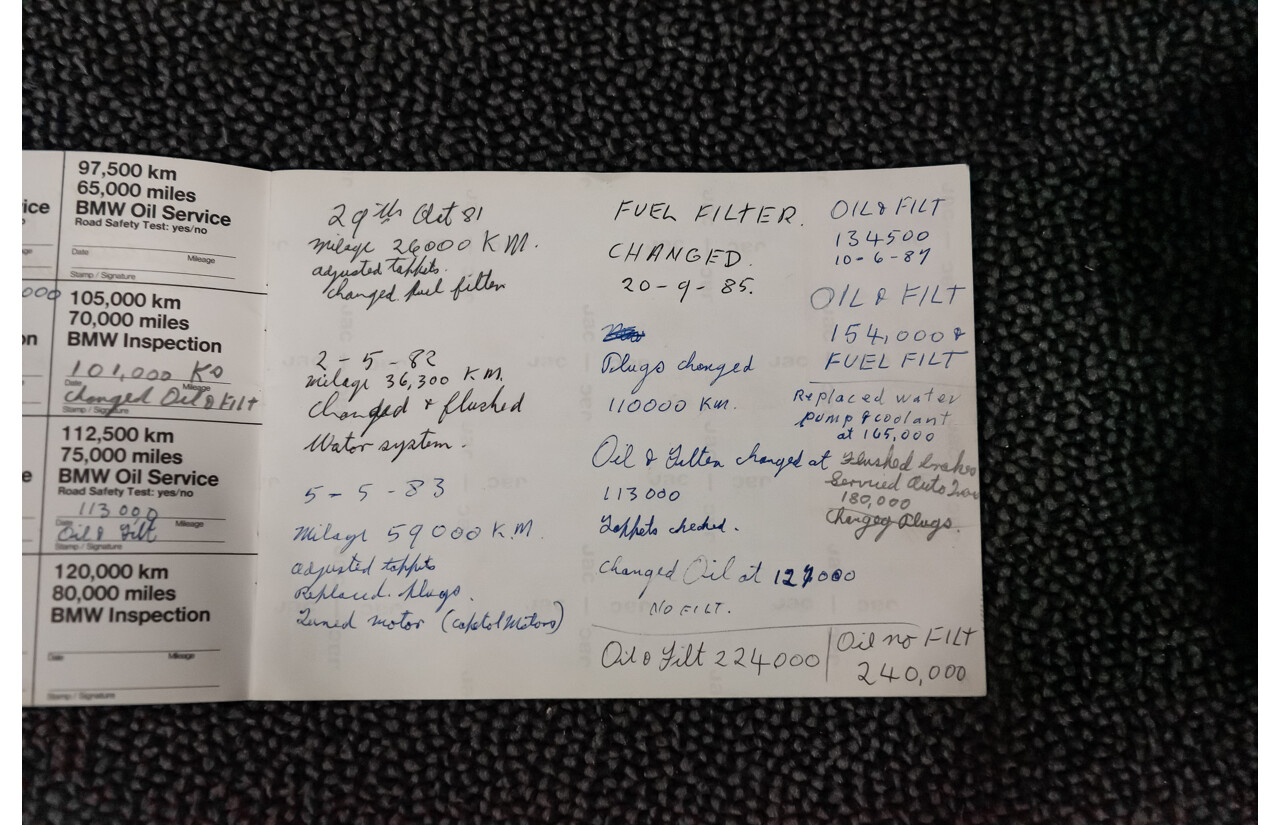 ice
97,500 km
65,000 miles
BMW Oil Service
Road Safety Test: yes/no
Date Mileage
Stamp / Signature
000
on
105,000 km
70,000 miles
BMW Inspection
101,000 Ko
Date Mileage
Changed Oil & FILT
Stamp / Signature
e
112,500 km
75,000 miles
BMW Oil Service
Road Safety Test: yes/no
113000
Date Mileage
Oil & Filt
Stamp / Signature
120,000 km
80,000 miles
BMW Inspection
Date Mileage
Stamp / Signature
29th Oct 81
milage 26000 KM.
adjusted tappets.
changed fuel filter
2-5-82
milage 36,300 KM.
Changed & flushed
Water system.
5-5-83
Milage 59000 K.M.
adjusted tappets
Replaced plugs.
Tuned motor (capitol Motors)
FUEL FILTER.
CHANGED.
20-9-85.
Plugs changed
110000 KM.
Oil & Filter changed at
113000
Tappets checked.
Changed Oil at
NO FILT.
Oil & Filt 224000
OIL & FILT
134500
10-6-87
OIL & FILT
154,000 &
FUEL FILT
Replaced water
pump & coolant
at 165,000
Flushed brakes
Serviced Auto
180,000
Plugs.
Oil no FILT
240,000